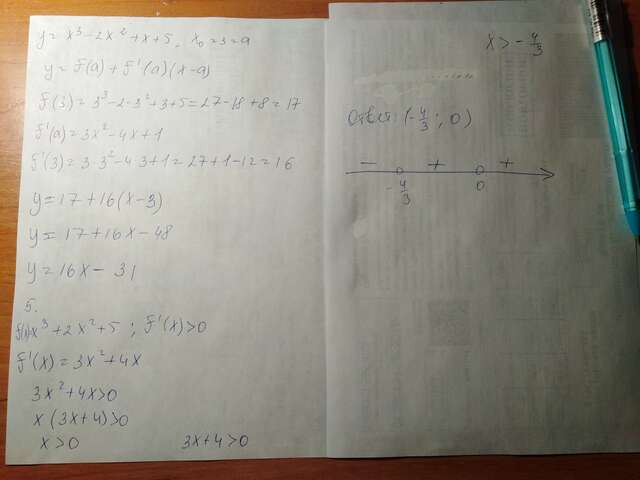 y = x³ - 2x² + x + 5, x₀ = 3 = a
y = f(a) + f'(a)(x-a)
f(3) = 3³ - 2·3² + 3 + 5 = 27 - 18 + 8 = 17
f'(a) = 3x² - 4x + 1
f'(3) = 3·3² - 4·3 + 1 = 27 + 1 - 12 = 16
y = 17 + 16(x-3)
y = 17 + 16x - 48
y = 16x - 31
5.
f(x) = x³ + 2x² + 5 ; f'(x) > 0
f'(x) = 3x² + 4x
3x² + 4x > 0
x(3x+4) > 0
x > 0 3x+4 > 0
x > - 4/3
Ответ: (- 4/3 ; 0)
- + +
- 4/3 0